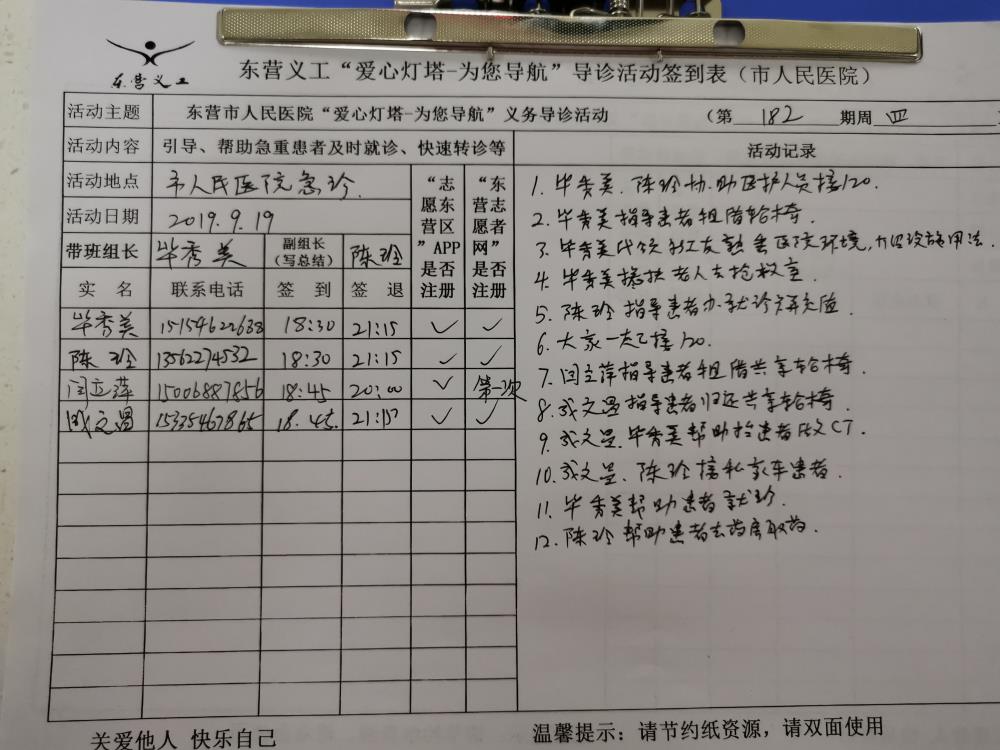 东营义工
东营义工“爱心灯塔-为您导航”导诊活动签到表（市人民医院）
活动主题 东营市人民医院“爱心灯塔-为您导航”义务导诊活动 （第 182 期周 四
活动内容 引导、帮助急重患者及时就诊、快速转诊等
活动地点 市人民医院急诊.
活动日期 2019.9.19
带班组长 毕秀美 副组长（写总结） 陈玲
“志愿东营区”APP是否注册
“东营志愿者网”是否注册
实 名 联系电话 签 到 签 退
毕秀美 15154622638 18:30 21:15 ✓ ✓
陈 玲 13562274532 18:30 21:15 ✓ ✓
闫立萍 15006887856 18:45 20:00 ✓ 第一次
成文昌 15354678
18.45 ✓ ✓
活动记录
1. 毕秀美.陈玲协助医护人员接120.
2. 毕秀美指导患者租借轮椅.
3. 毕秀美代领社友熟悉医院环境,
4. 毕秀美搀扶老人去抢救室.
5. 陈玲指导患者办就诊卡充值.
6. 大家一起接120.
7. 闫立萍指导患者租借共享轮椅.
8. 成文昌指导患者归还共享轮椅.
9. 成文昌.毕秀美帮助推患者做CT.
10. 成文昌.陈玲接私家车患者.
11. 毕秀美帮助患者就诊.
12. 陈玲帮助患者去药房取药.
关爱他人 快乐自己
温馨提示：请节约纸资源，请双面使用